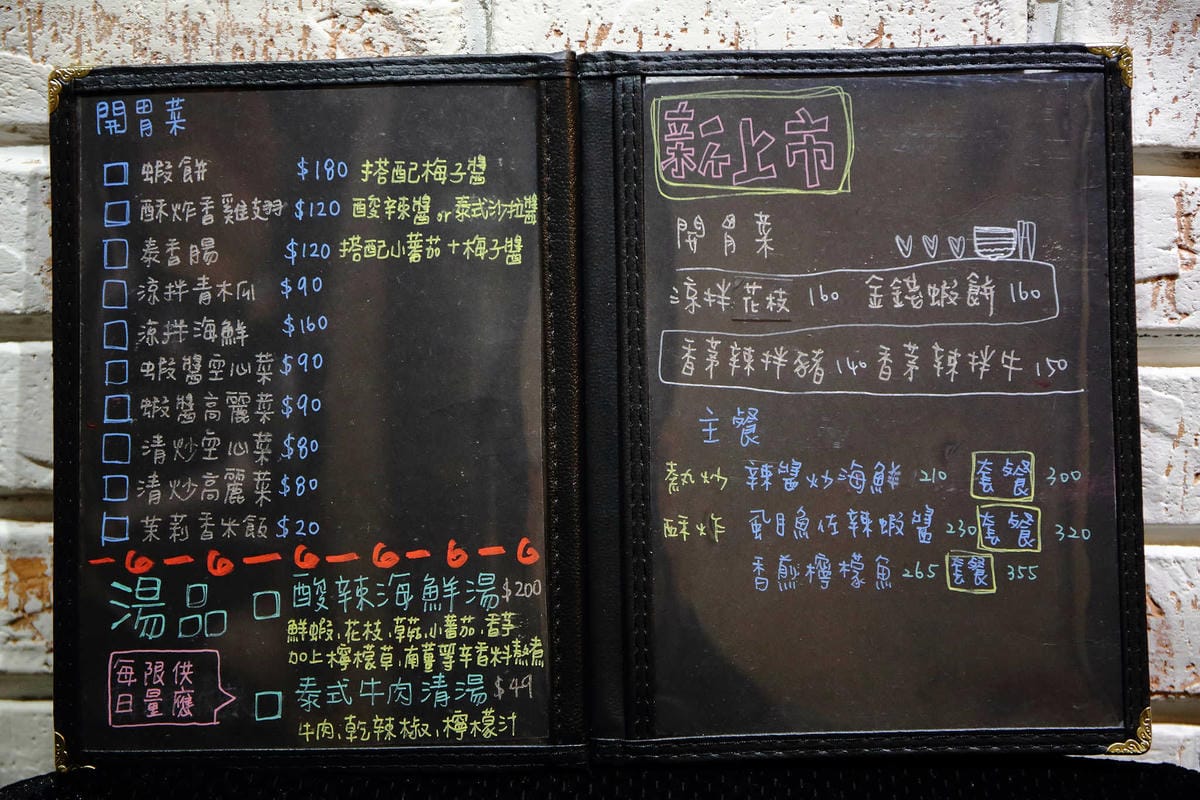 開胃菜
蝦餅 $180 搭配梅子醬
酥炸香雞翅 $120 酸辣醬 or 泰式沙拉醬
泰香腸 $120 搭配小蕃茄+梅子醬
涼拌青木瓜 $90
涼拌海鮮 $160
蝦醬空心菜 $90
蝦醬高麗菜 $90
清炒空心菜 $80
清炒高麗菜 $80
茉莉香米飯 $20
湯品 酸辣海鮮湯 $200
鮮蝦、花枝、草菇、小蕃茄、香芋
加上檸檬草、南薑等辛香料熱煮
每日限量供應
泰式牛肉清湯 $49
牛肉、乾辣椒、檸檬汁
新上市
開胃菜
涼拌花枝 160 金錢蝦餅 160
香茅辣拌豬 140 香茅辣拌牛 150
主餐
熱炒 辣醬炒海鮮 210 套餐 300
酥炸 虱目魚佐辣蝦醬 230 套餐 320
香煎檸檬魚 265 套餐 355